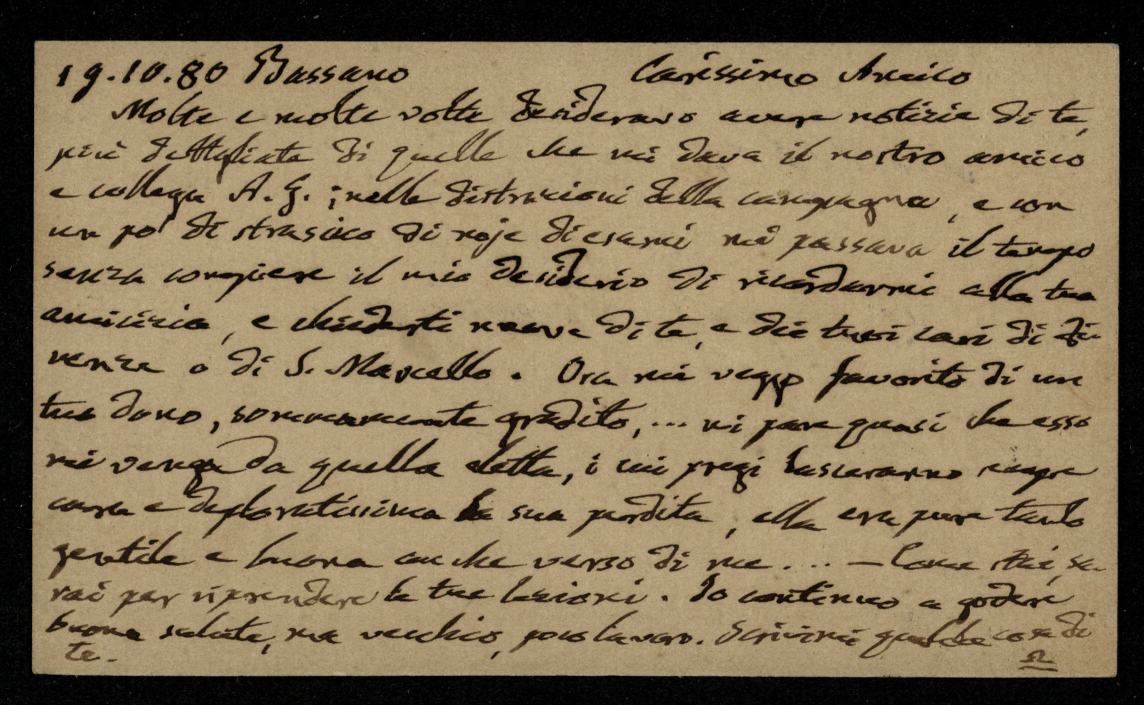 19.10.80 Bassano Carissimo Amico
Molte e molte volte desideravo avere notizie di te,
più dettagliate di quelle che mi dava il nostro amico
e collega A. G.; nelle distrazioni della campagna, e con
un po' di strasico di noje di esami mi passava il tempo
senza compiere il mio desiderio di ricordarmi alla tua
amicizia, e chiederti nuove di te, e dei tuoi cari di Fi-
renze o di S. Marcello. Ora mi veggo favorito di un
tuo dono, sommamente gradito, ... mi pare quasi che esso
mi venga da quella eletta, i cui pregi lasceranno sempre
cara e deploratissima la sua perdita, ella era pure tanto
gentile e buona anche verso di me .... — Come stai, sa-
rai per riprendere le tue lezioni. Io continuo a godere
buona salute, ma vecchio, poco lavoro. Scrivimi qualche cosa di
te.